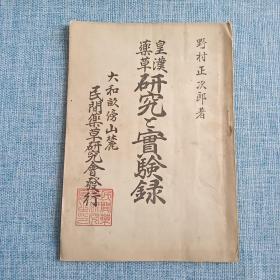 野村正次郎著
皇漢
藥草
研究と實驗録
大和畝傍山麓
民間藥草研究會發行